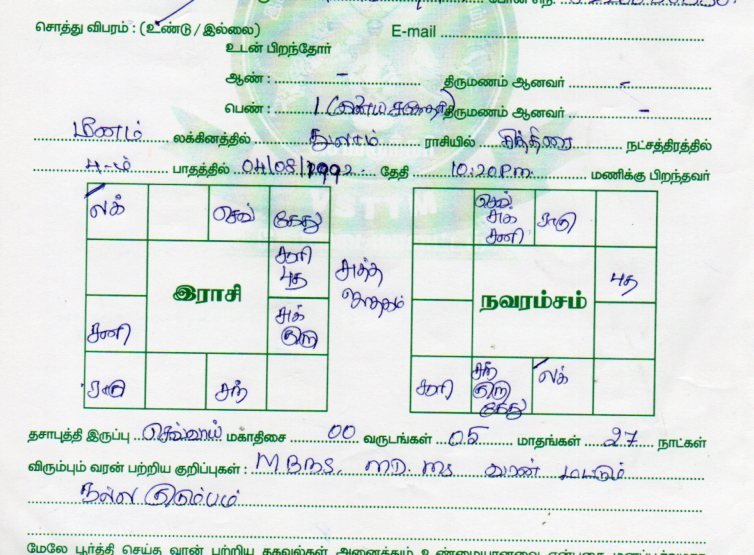 சொத்து விபரம் : (உண்டு / இல்லை) E-mail
உடன் பிறந்தோர்
ஆண் : - திருமணம் ஆனவர் -
பெண் : 1 திருமணம் ஆனவர் -
மீனம் லக்கினத்தில் துலாம் ராசியில் சித்திரை நட்சத்திரத்தில்
4-ம் பாதத்தில் 04/08/1992 தேதி 10:20 P.m மணிக்கு பிறந்தவர்
லக் செவ் கேது
சனி புத
இராசி
சுக் குரு
சனி
ராகு சந்
செவ் சுக் சனி ராகு
புத
நவரம்சம்
சூரி சந் குரு கேது லக்
தசாபுத்தி இருப்பு செவ்வாய் மகாதிசை 00 வருடங்கள் 05 மாதங்கள் 27 நாட்கள்
விரும்பும் வரன் பற்றிய குறிப்புகள் : M.B.B.S. MD. MS வரன் மட்டும்
நல்ல குடும்பம்
மேலே பூர்த்தி செய்த வரன் பற்றிய தகவல்கள் அனைத்தும் உண்மையானவை